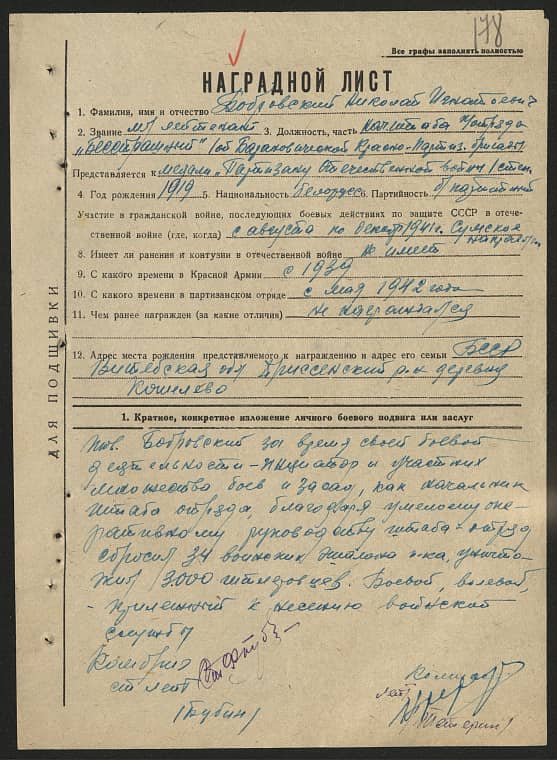 178
Все графы заполнять полностью
НАГРАДНОЙ ЛИСТ
1. Фамилия, имя и отчество Бобровский Николай Игнатьевич
2. Звание мл лейтенант 3. Должность, часть Нач. штаба отряда
"Бесстрашный"
Представляется к медали „Партизану Отечественной войны I степ.
4. Год рождения 1919 5. Национальность белорусс 6. Партийность б/партийный
Участие в гражданской войне, последующих боевых действиях по защите СССР в отече-
ственной войне (где, когда) с августа по декабр 1941 г. Сумское направл.
8. Имеет ли ранения и контузии в отечественной войне Не имеет
9. С какого времени в Красной Армии с 1939
10. С какого времени в партизанском отряде с мая 1942 года
11. Чем ранее награжден (за какие отличия) Не награждался
12. Адрес места рождения представляемого к награждению и адрес его семьи БССР
Витебская обл Дриссенский р-н деревня
Кошелево
ДЛЯ ПОДШИВКИ
1. Краткое, конкретное изложение личного боевого подвига или заслуг
тов. Бобровский за время своей боевой
деятельности - инциатор и участник
множества боев и засад, как начальник
штаба отряда, благодаря умелому опе-
ративному руководству штаба - отряд
сбросил 34 воинских эшалона п-ка, уничто-
жил 3000 гитлеровцев. Боевой, волевой,
к несению воинской
службы
Комбриг
ст лейт
/Бубин/
Командир
лейт